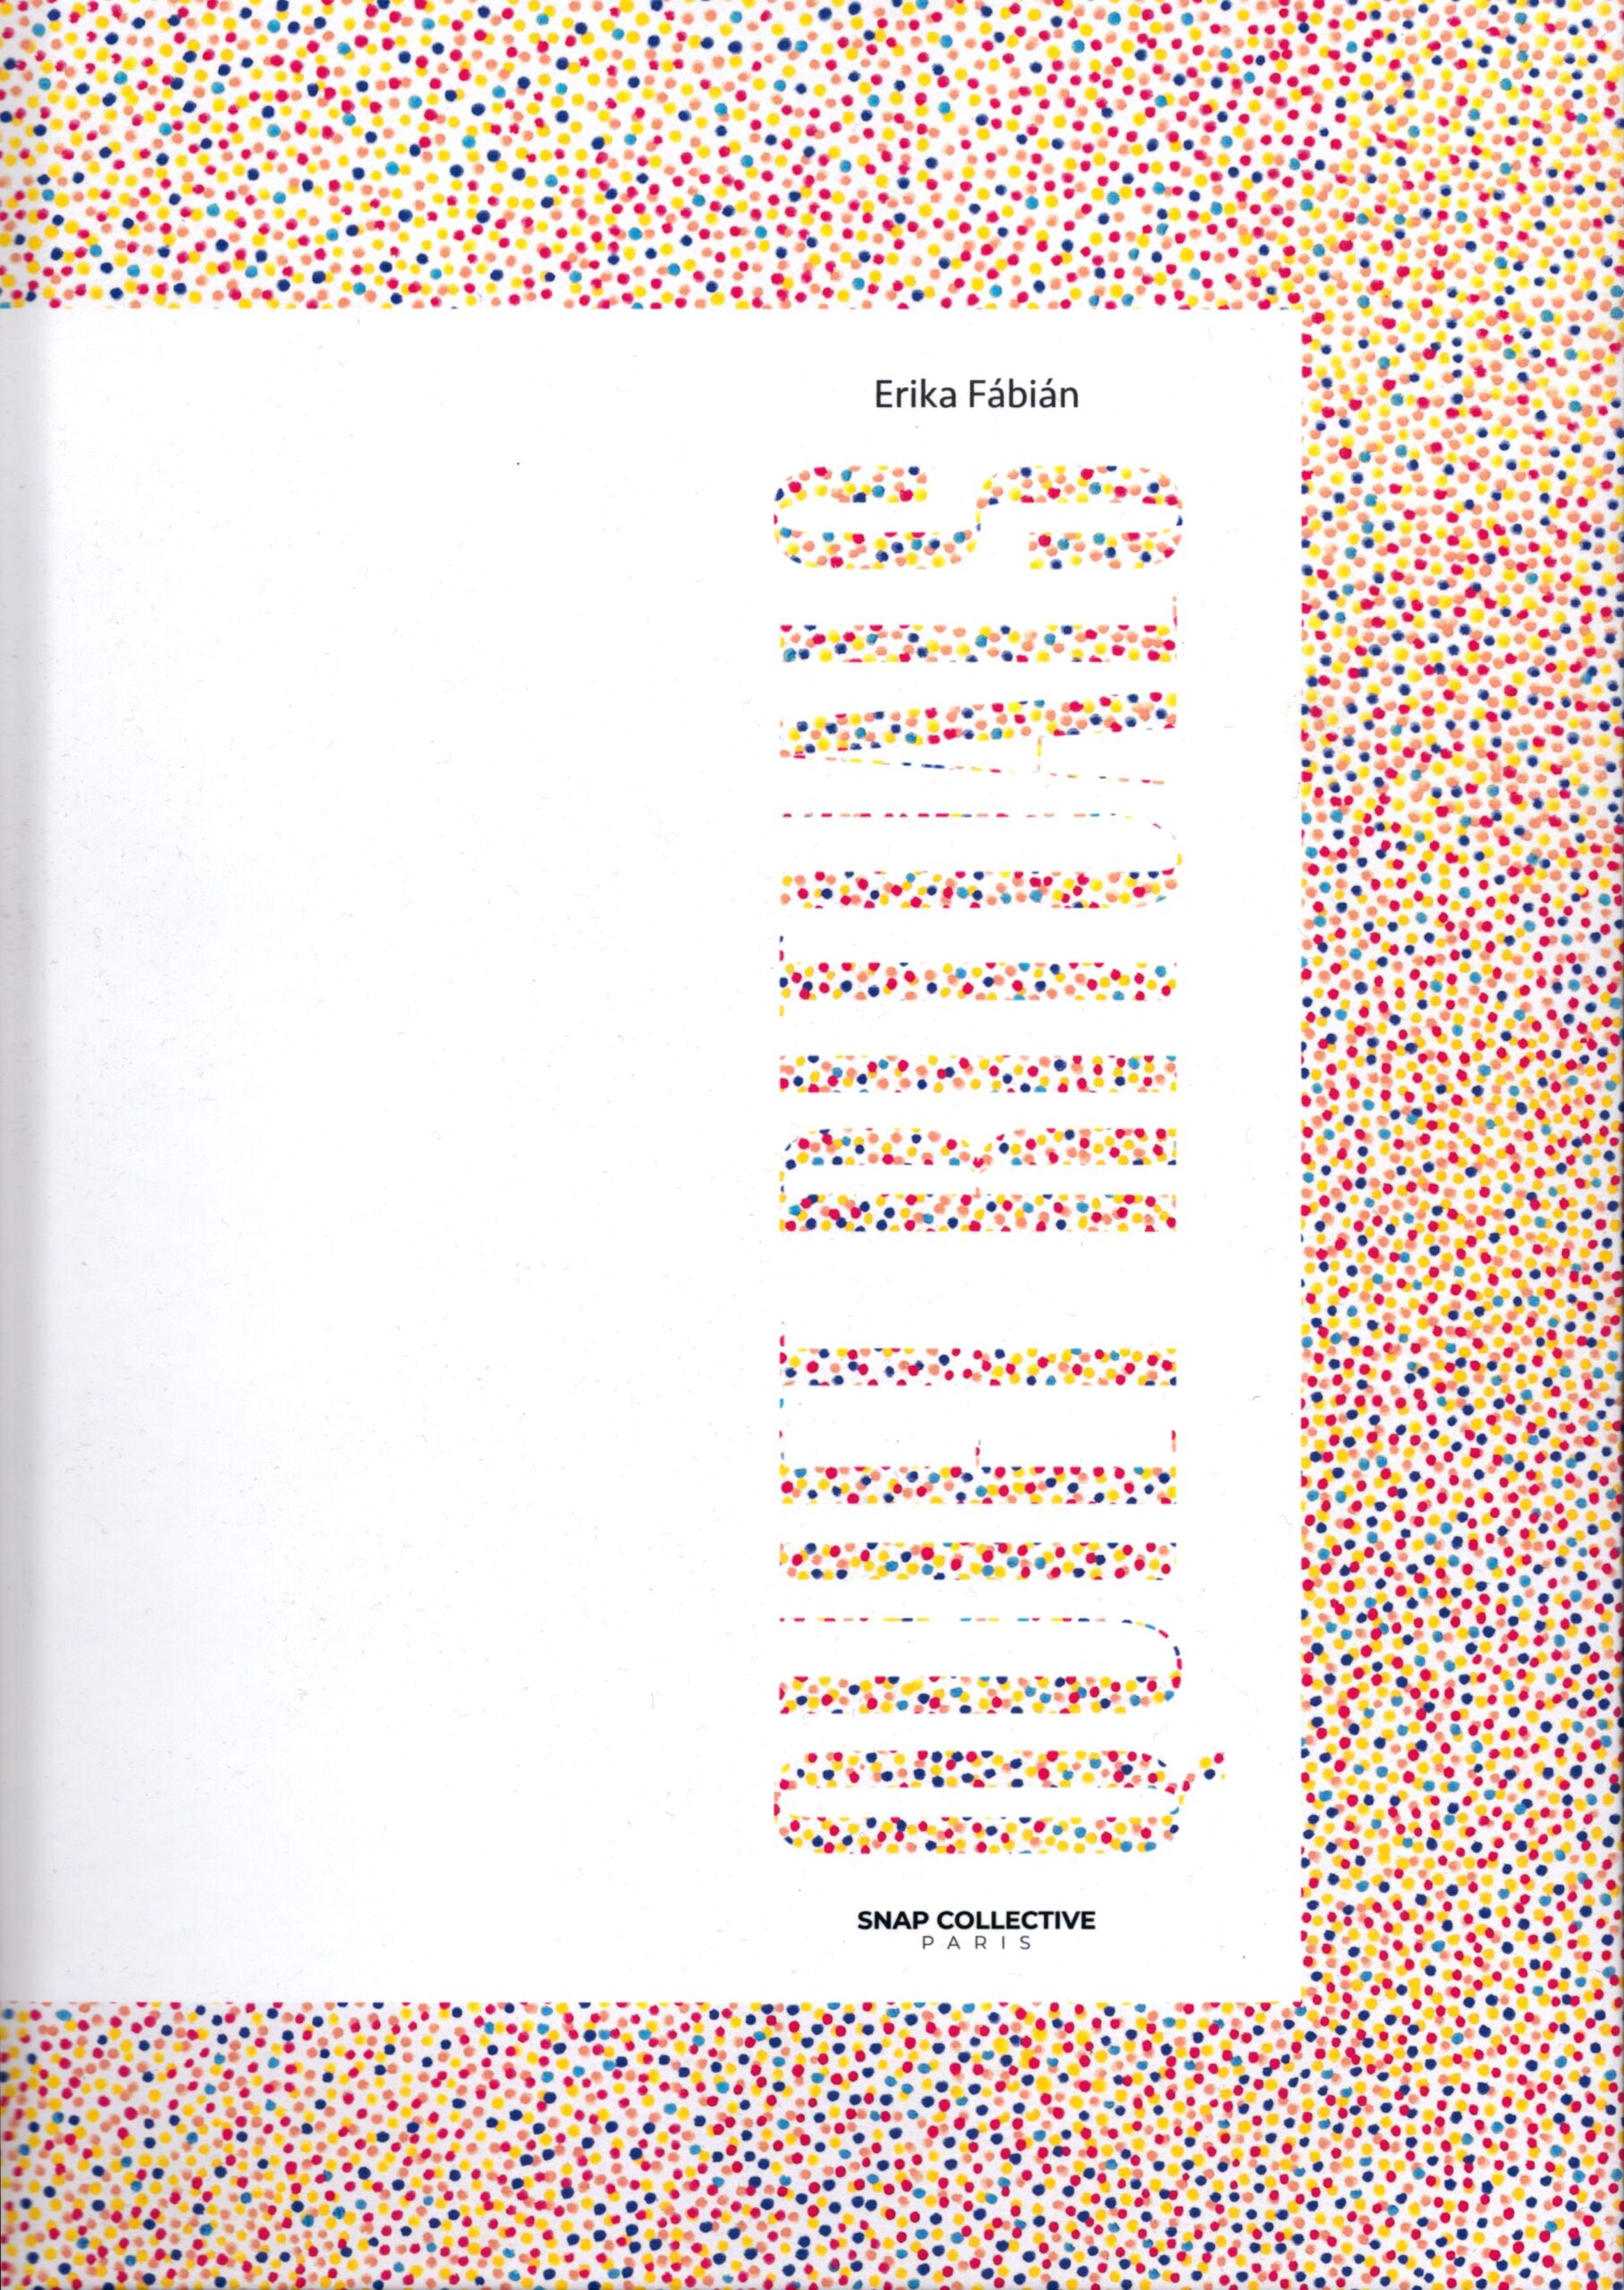 Erika Fábián
QUIET RITUALS
SNAP COLLECTIVE
PARIS